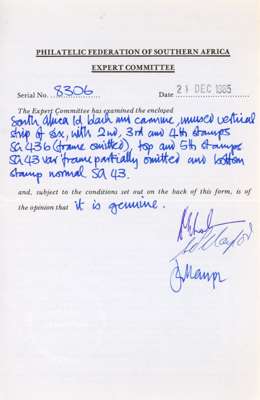 PHILATELIC FEDERATION OF SOUTHERN AFRICA
EXPERT COMMITTEE
Serial No. 8306 Date 21 DEC 1985
The Expert Committee has examined the enclosed
South Africa 1d black and carmine, unused vertical
strip of six, with 2nd, 3rd and 4th stamps
SG 43b (frame omitted), top and 5th stamps
SG 43 var frame partially omitted and bottom
stamp normal SG 43.
and, subject to the conditions set out on the back of this form, is of
the opinion that it is genuine.